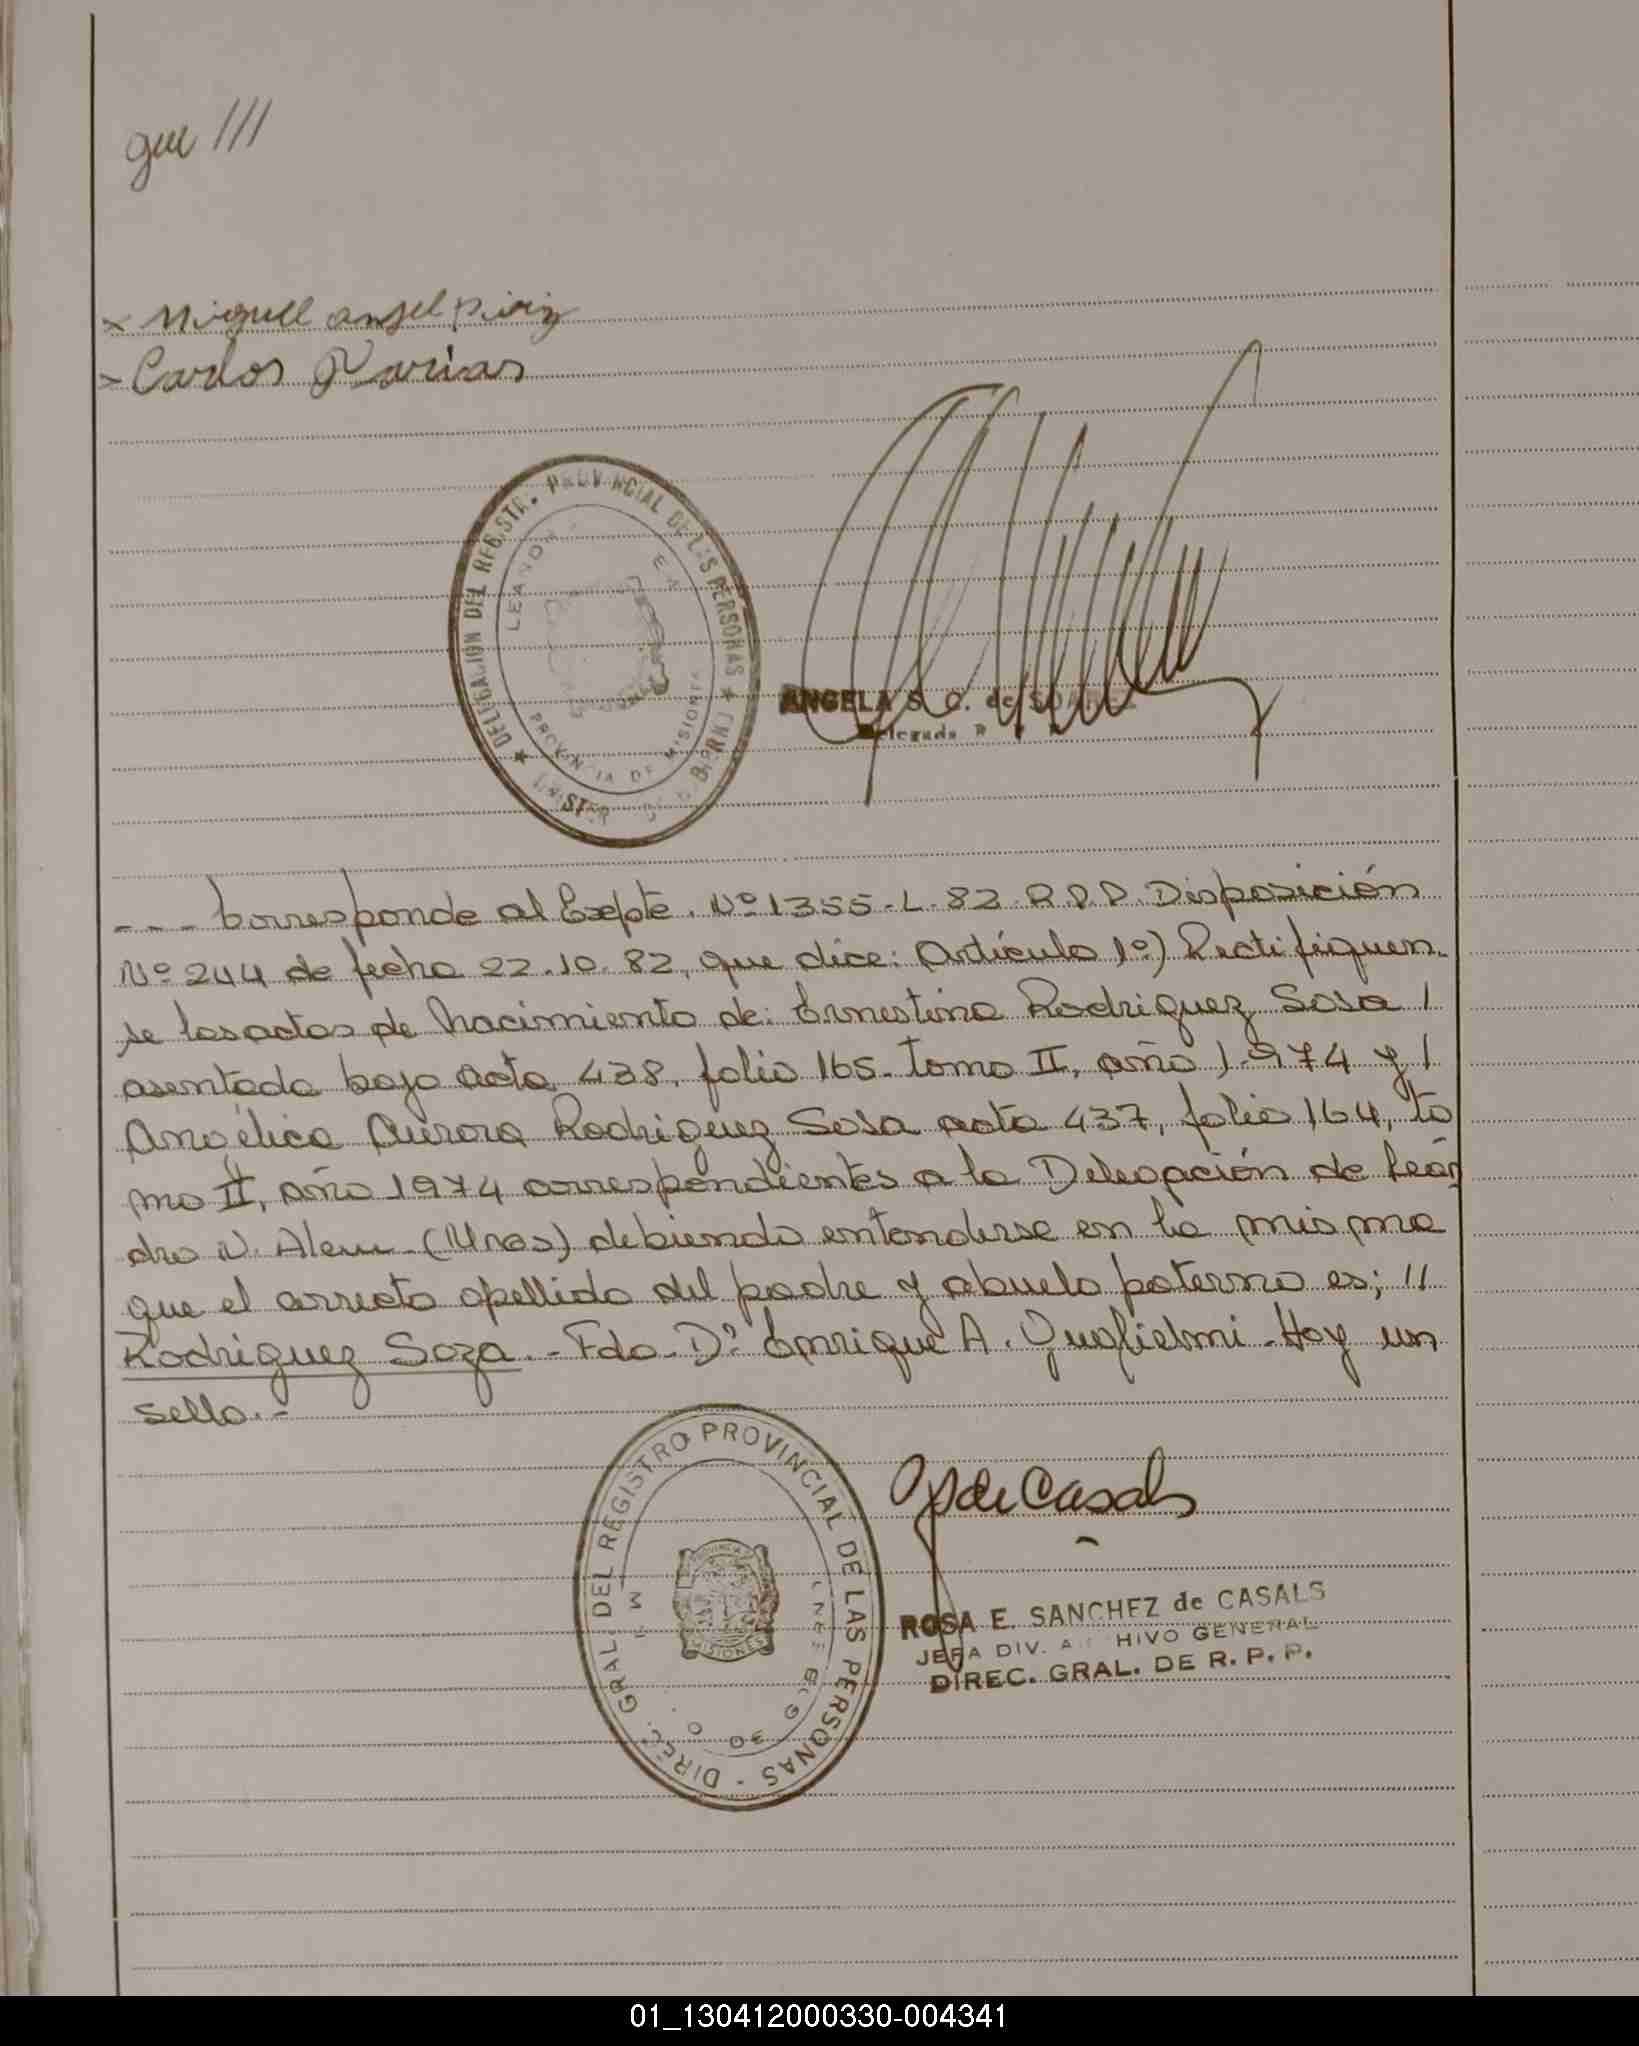 que ///
x Miguel angel Piriz
- Carlos Varias
DELEGACION DEL REGISTRO PROVINCIAL DE LAS PERSONAS
LEANDRO
PROVINCIA DE MISIONES
ANGELA S. C. de SOAREZ
Delegada
--- Corresponde al Expte. Nº 1355-L-82 R.P.P. Disposición
Nº 244 de fecha 22.10.82, que dice: Artículo 1º) Rectifiquen-
se las actas de Nacimiento de: Ernestina Rodriguez Sosa /
asentada bajo acta 438, folio 165. tomo II, año 1.974 y /
Angélica Aurora Rodriguez Sosa acta 437, folio 164, to
mo II, año 1974 correspondientes a la Delegación de Lean
dro N. Alem (Mnes) debiendo entenderse en la misma
que el correcto apellido del padre y abuelo paterno es; //
Rodriguez Soza.- Fdo. Dr. Enrique A. Guglielmi. Hay un
sello.-
DIREC. GRAL. DEL REGISTRO PROVINCIAL DE LAS PERSONAS -
PROVINCIA
MISIONES
de Casals
ROSA E. SANCHEZ de CASALS
JEFA DIV. ARCHIVO GENERAL
DIREC. GRAL. DE R. P. P.
01_130412000330-004341